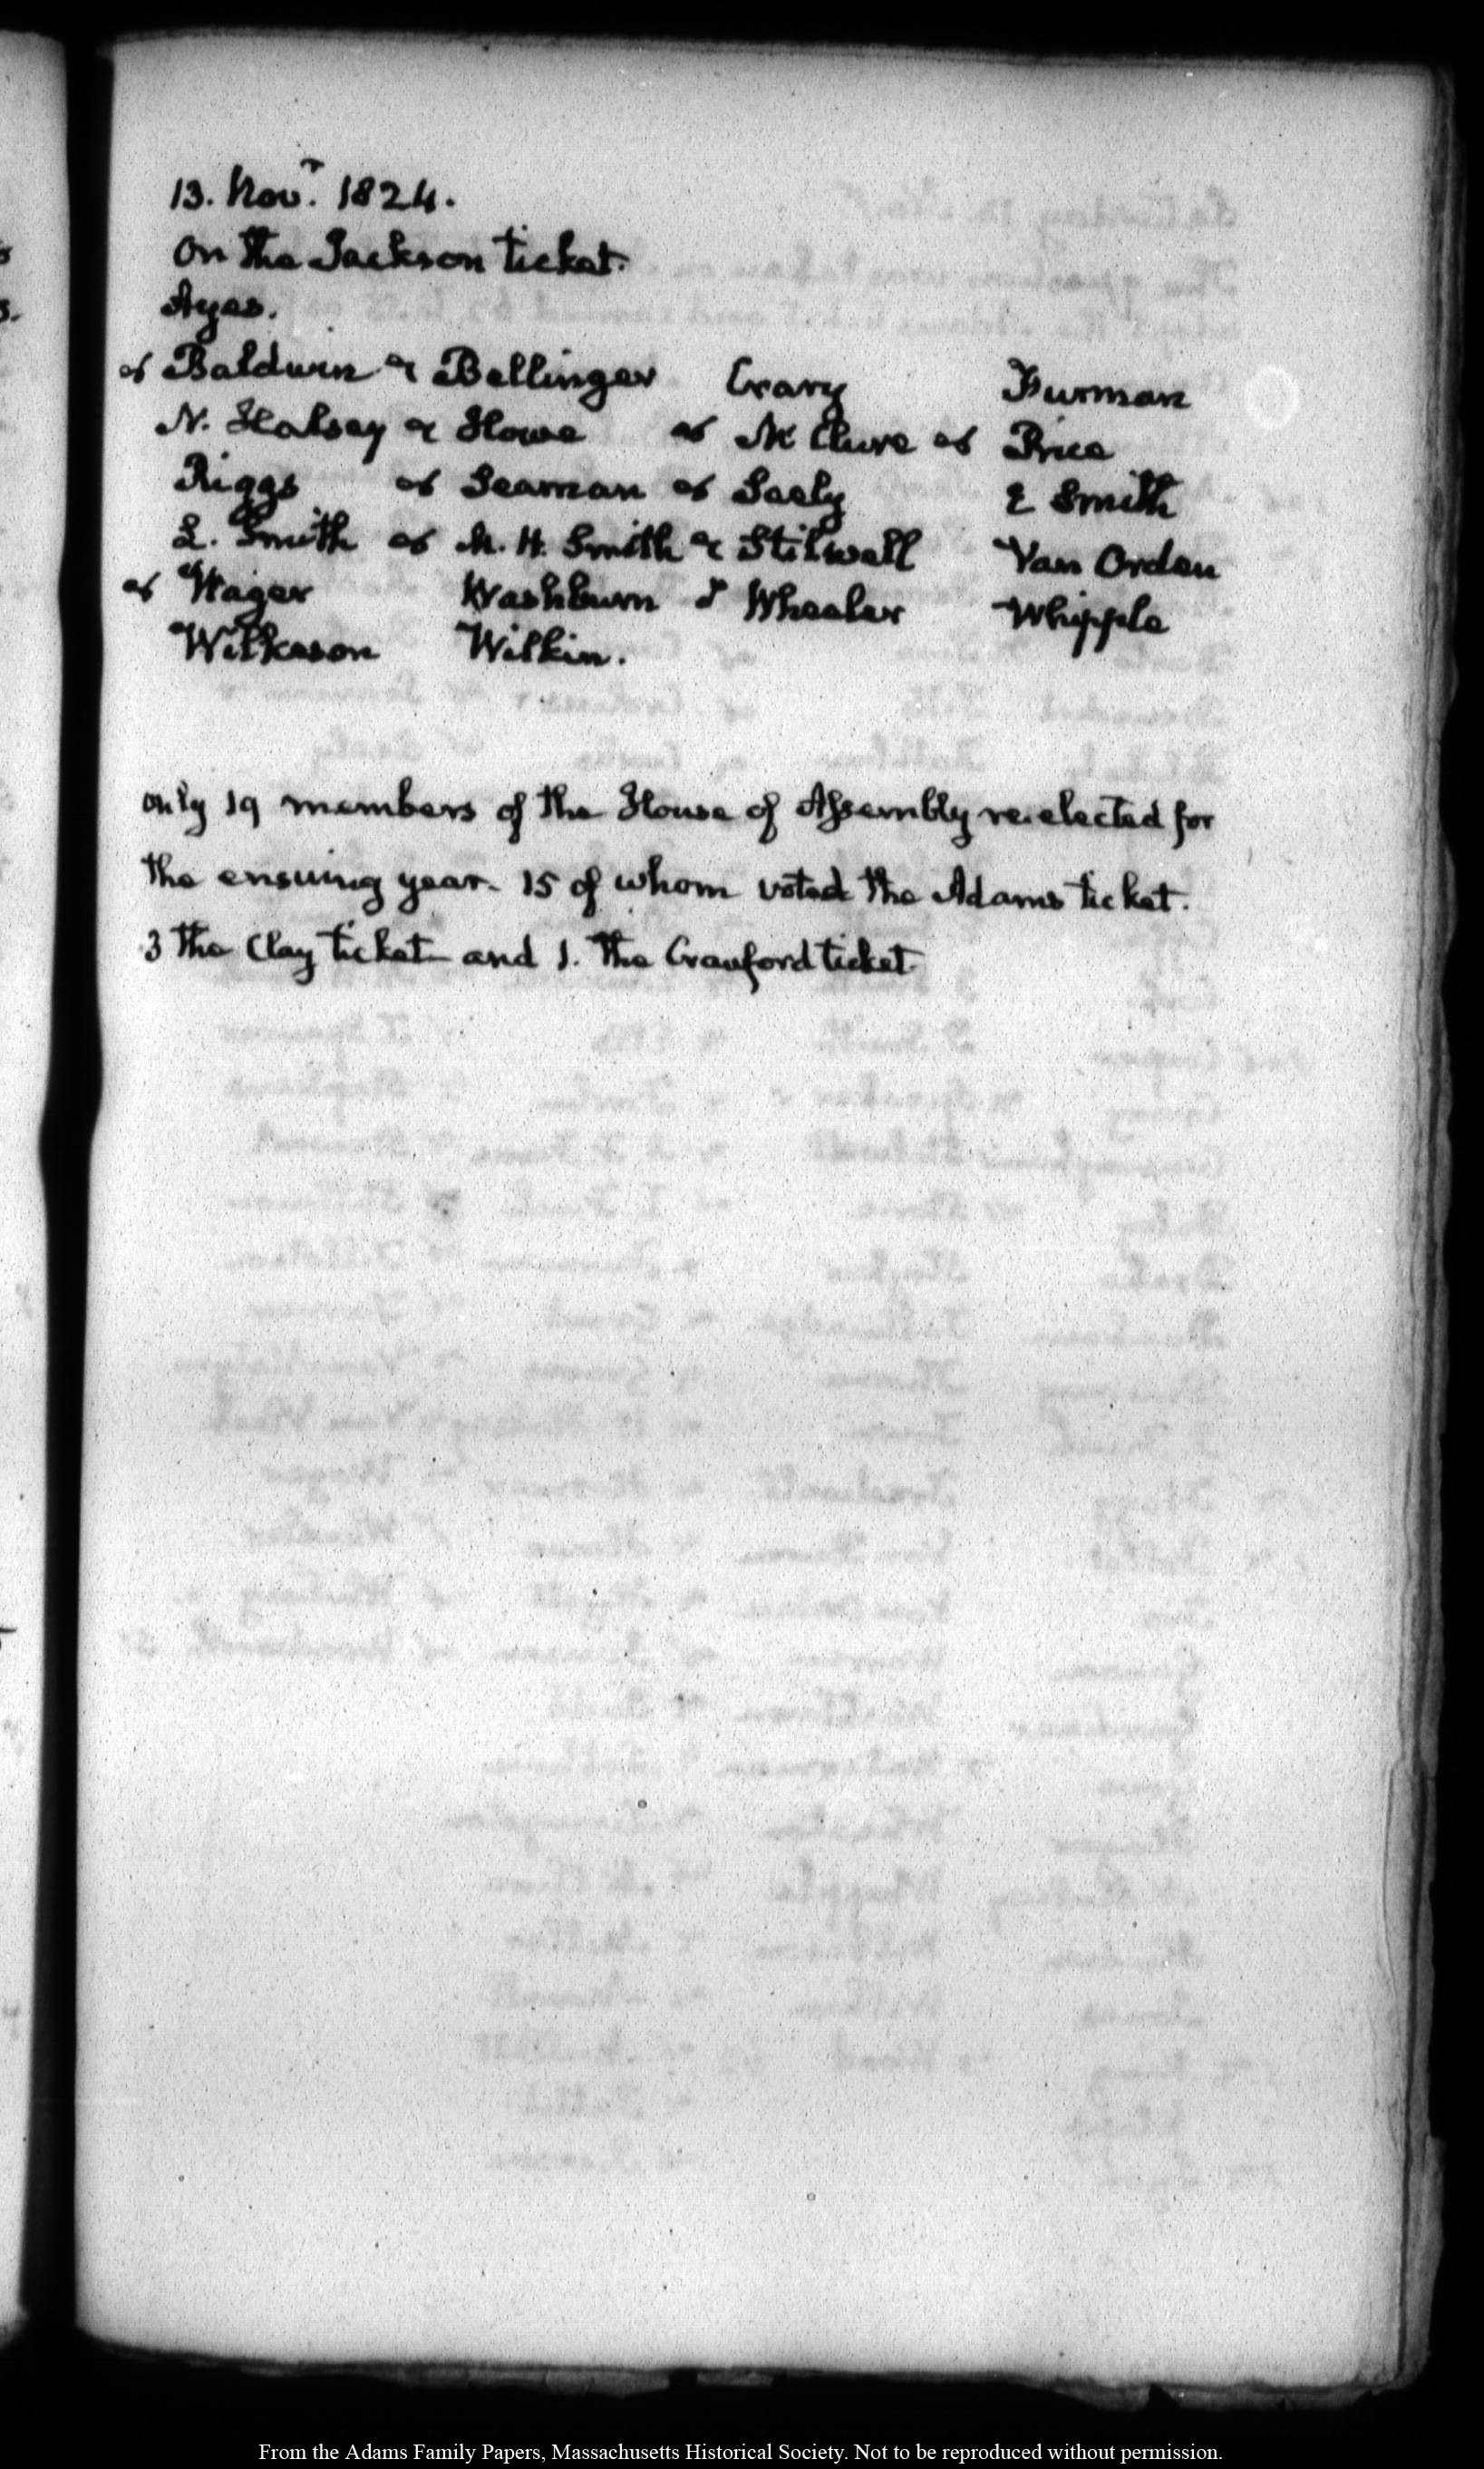 13. Novr. 1824.
On the Jackson ticket.
Ayes.
Baldwin Bellinger Crary Furman
N. Halsey Howe McClure Price
Riggs Seaman Seely E Smith
L. Smith M. H. Smith Stilwell Van Orden
Wager Washburn Wheeler Whipple
Wilkeson Wilkin.
only 19 members of the House of Assembly re.elected for
the ensuing year- 15 of whom voted the Adams ticket.
3 the Clay ticket and 1. the Crawford ticket
From the Adams Family Papers, Massachusetts Historical Society. Not to be reproduced without permission.